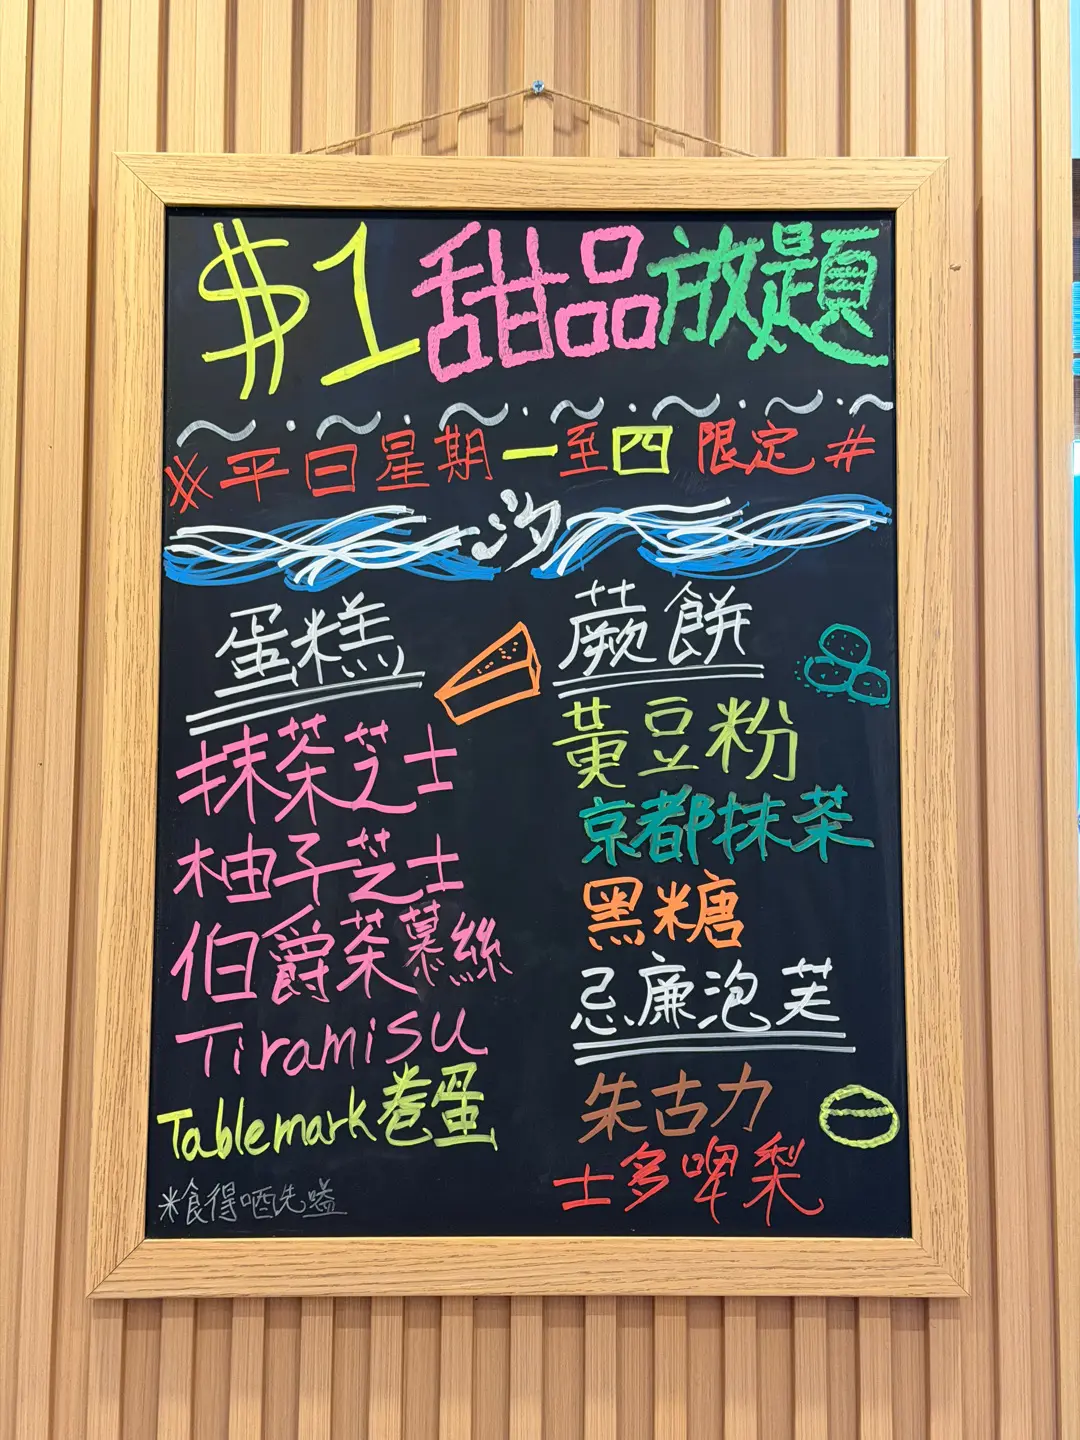 $1甜品放題
※平日星期一至四限定#
汐
蛋糕
抹茶芝士
柚子芝士
伯爵茶慕絲
Tiramisu
Tablemark卷蛋
*食得哂先嗌
蕨餅
黃豆粉
京都抹茶
黑糖
忌廉泡芙
朱古力
士多啤梨